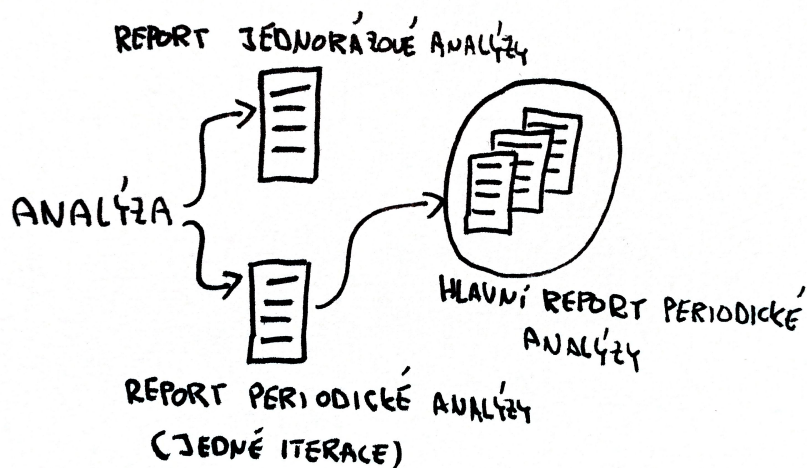 REPORT JEDNORÁZOVÉ ANALÝZY
ANALÝZA
HLAVNÍ REPORT PERIODICKÉ
ANALÝZY
REPORT PERIODICKÉ ANALÝZY
(JEDNÉ ITERACE)